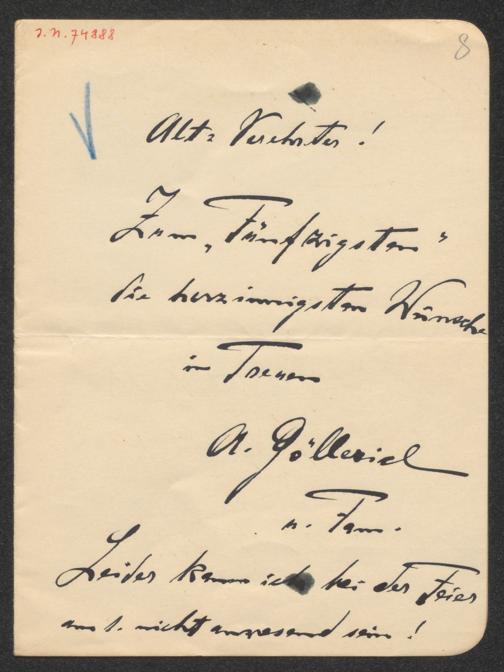 J.N. 74888
8
Alt-Verehrter!
Zum „Fünfzigsten“
die herzinnigsten Wünsche
in Treuen
A. Göllerich
u. Fam.
Leider kann ich bei der Feier
am 1. nicht anwesend sein!